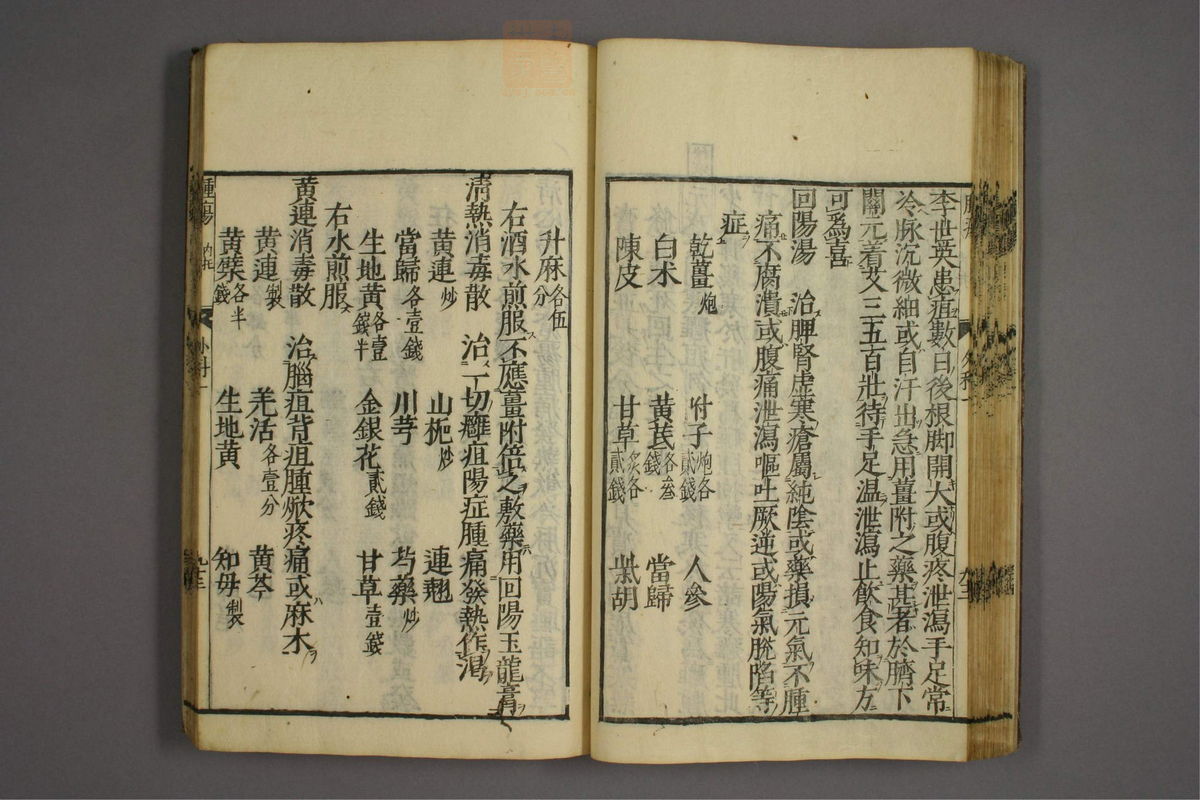 李世英患疽數日後根脚開大或腹疼泄瀉手足常
冷脉沉微細或自汗出急用薑附之藥甚者於臍下
關元着艾三五百壯待手足温泄瀉止飲食知味方
可爲喜
回陽湯　治脾腎虛寒瘡屬純陰或藥損元氣不腫
痛不腐潰或腹痛泄瀉嘔吐厥逆或陽氣脫陷等
症
乾薑炮　附子炮各貳錢　人參
白朮　黃芪各叁錢　當歸
陳皮　甘草炙各貳錢　柴胡
升麻各伍分
右酒水煎服不應薑附倍之敷藥用回陽玉龍膏
清熱消毒散　治一切癰疽陽症腫痛發熱作渴
黃連炒　山梔炒　連翹
當歸各壹錢　川芎　芍藥炒
生地黃各壹錢半　金銀花貳錢　甘草壹錢
右水煎服
黃連消毒散　治腦疽背疽腫焮疼痛或麻木
黃連製　羌活各壹分　黃芩
黃蘗各半錢　生地黃　知母製
腫瘍
九十三